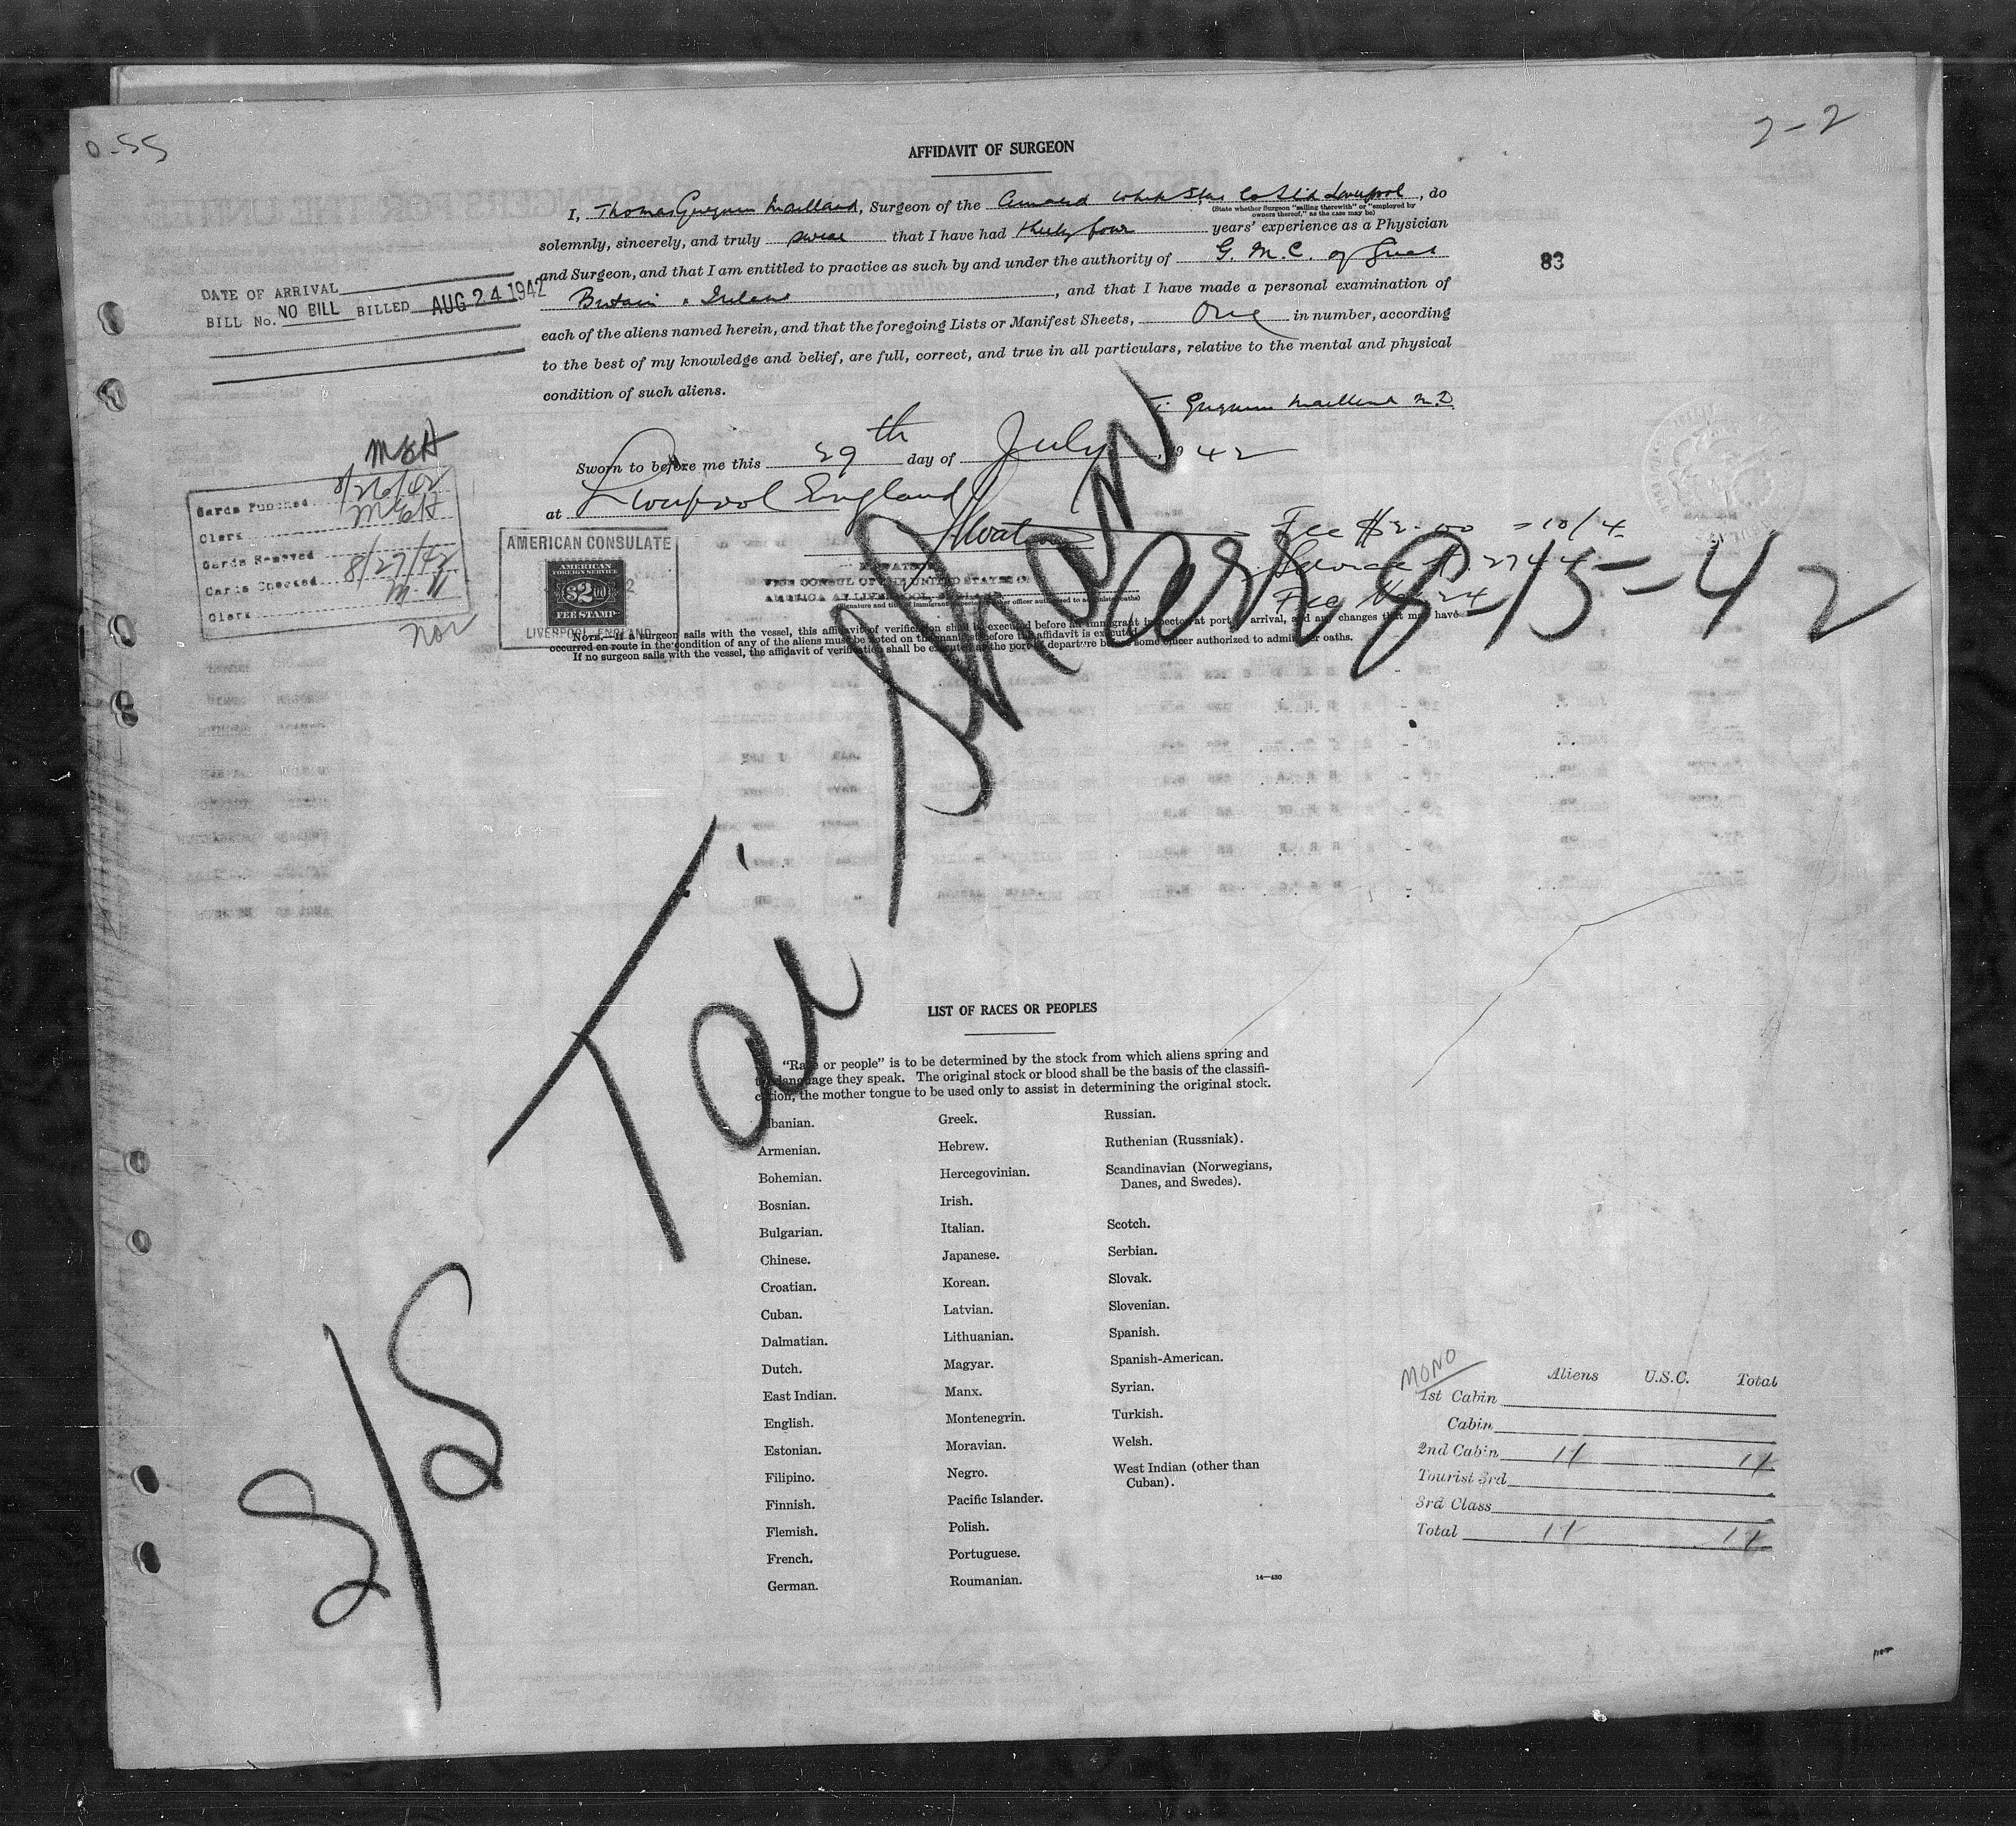 0-55
2-2
AFFIDAVIT OF SURGEON
I, Thomas Maitland, Surgeon of the Cunard White Star Co Ltd Liverpool, do
(State whether Surgeon "sailing therewith" or "employed by
owners thereof," as the case may be)
solemnly, sincerely, and truly swear that I have had thirty four years' experience as a Physician
and Surgeon, and that I am entitled to practice as such by and under the authority of G. M. C. of Great
83
Britain & Ireland, and that I have made a personal examination of
each of the aliens named herein, and that the foregoing Lists or Manifest Sheets, One in number, according
to the best of my knowledge and belief, are full, correct, and true in all particulars, relative to the mental and physical
condition of such aliens.
DATE OF ARRIVAL
BILL No. NO BILL BILLED AUG 24 1942
T. Maitland M.D.
Sworn to before me this 29th day of July, 1942
at Liverpool England
Fee $2.00 = 10/4
Service No 2744
Fee No 24
MGH
Cards Punched 8/26/42
Clerk MGH
Cards Removed
Cards Checked 8/27/42
Clerk M.H
Nor
AMERICAN CONSULATE
AMERICAN
FOREIGN SERVICE
$2.00
FEE STAMP
LIVERPOOL, ENGLAND
WATSON
VICE CONSUL OF THE UNITED STATES OF
AMERICA AT LIVERPOOL, ENGLAND
(Signature and title of immigrant inspector or other officer authorized to administer oaths)
NOTE.—If a surgeon sails with the vessel, this affidavit of verification shall be executed before an immigrant inspector at port of arrival, and any changes that may have
occurred en route in the condition of any of the aliens must be noted on the manifest before the affidavit is executed.
If no surgeon sails with the vessel, the affidavit of verification shall be executed at the port of departure before some officer authorized to administer oaths.
S/S Tai Shan
arr 8-15-42
LIST OF RACES OR PEOPLES
"Race or people" is to be determined by the stock from which aliens spring and
the language they speak. The original stock or blood shall be the basis of the classifi-
cation, the mother tongue to be used only to assist in determining the original stock.
Albanian.
Armenian.
Bohemian.
Bosnian.
Bulgarian.
Chinese.
Croatian.
Cuban.
Dalmatian.
Dutch.
East Indian.
English.
Estonian.
Filipino.
Finnish.
Flemish.
French.
German.
Greek.
Hebrew.
Hercegovinian.
Irish.
Italian.
Japanese.
Korean.
Latvian.
Lithuanian.
Magyar.
Manx.
Montenegrin.
Moravian.
Negro.
Pacific Islander.
Polish.
Portuguese.
Roumanian.
Russian.
Ruthenian (Russniak).
Scandinavian (Norwegians,
Danes, and Swedes).
Scotch.
Serbian.
Slovak.
Slovenian.
Spanish.
Spanish-American.
Syrian.
Turkish.
Welsh.
West Indian (other than
Cuban).
14—430
MONO
Aliens U.S.C. Total
1st Cabin
Cabin
2nd Cabin 11 11
Tourist 3rd
3rd Class
Total 11 11